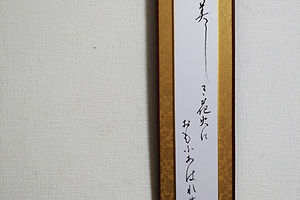 美しき花火に
おもふあはれ